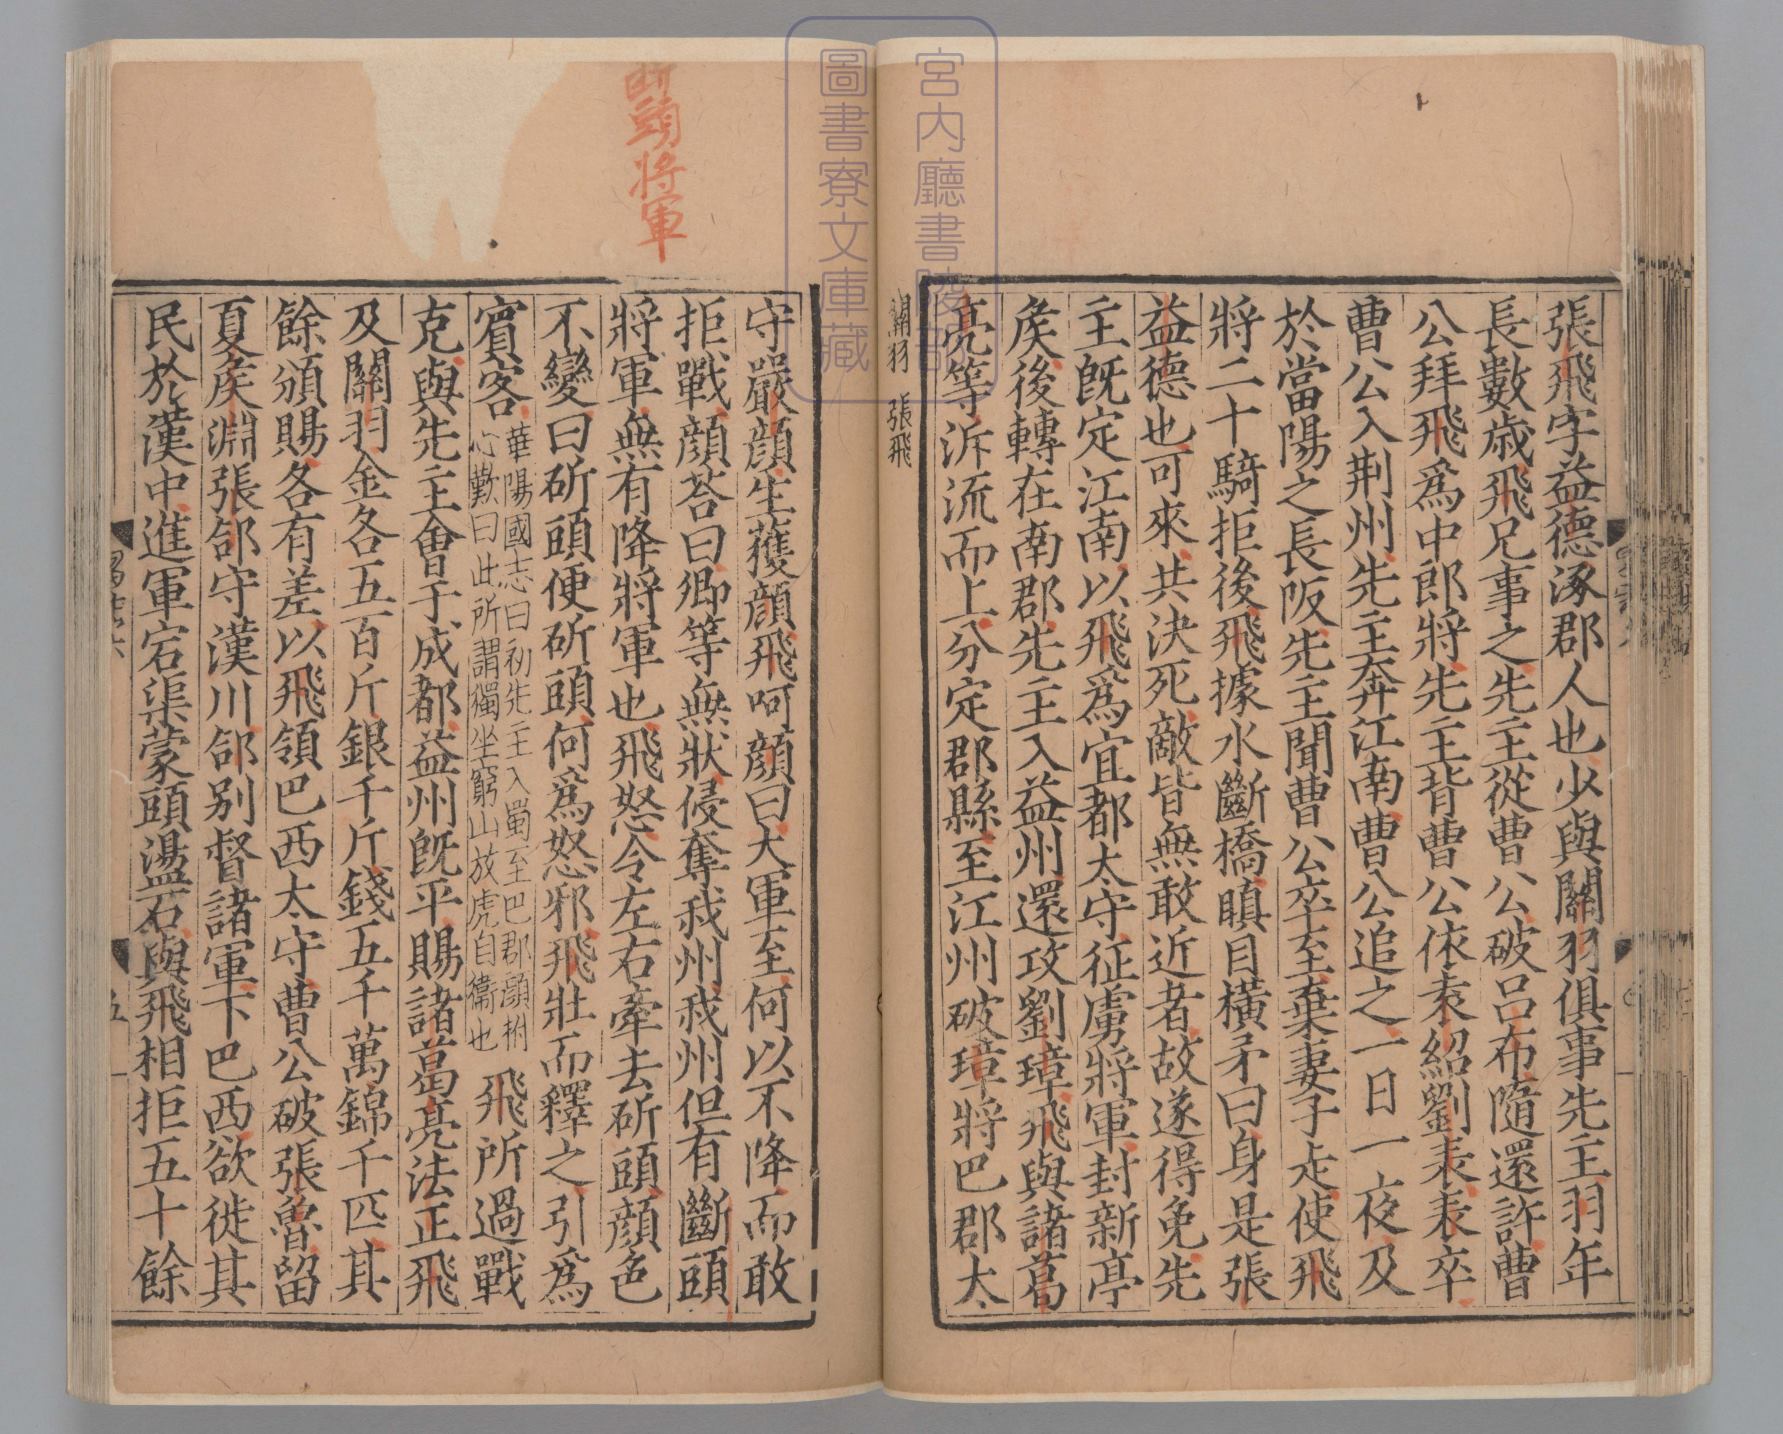 宮内廳書陵部
圖書寮文庫藏
張飛字益德涿郡人也少與關羽俱事先主羽年
長數歲飛兄事之先主從曹公破呂布隨還許曹
公拜飛爲中郎將先主背曹公依袁紹劉表表卒
曹公入荆州先主奔江南曹公追之一日一夜及
於當陽之長阪先主聞曹公卒至棄妻子走使飛
將二十騎拒後飛據水斷橋瞋目橫矛曰身是張
益德也可來共決死敵皆無敢近者故遂得免先
主旣定江南以飛爲宜都太守征虜將軍封新亭
矦後轉在南郡先主入益州還攻劉璋飛與諸葛
亮等泝流而上分定郡縣至江州破璋將巴郡太
關羽 張飛
斷頭將軍
守嚴顔生獲顔飛呵顔曰大軍至何以不降而敢
拒戰顔荅曰卿等無狀侵奪我州我州但有斷頭
將軍無有降將軍也飛怒令左右牽去斫頭顔色
不變曰斫頭便斫頭何爲怒邪飛壯而釋之引爲
賓客
華陽國志曰初先主入蜀至巴郡顔拊
心歎曰此所謂獨坐窮山放虎自衞也
飛所過戰
克與先主會于成都益州旣平賜諸葛亮法正飛
及關羽金各五百斤銀千斤錢五千萬錦千匹其
餘頒賜各有差以飛領巴西太守曹公破張魯留
夏矦淵張郃守漢川郃別督諸軍下巴西欲徙其
民於漢中進軍宕渠蒙頭盪石與飛相拒五十餘